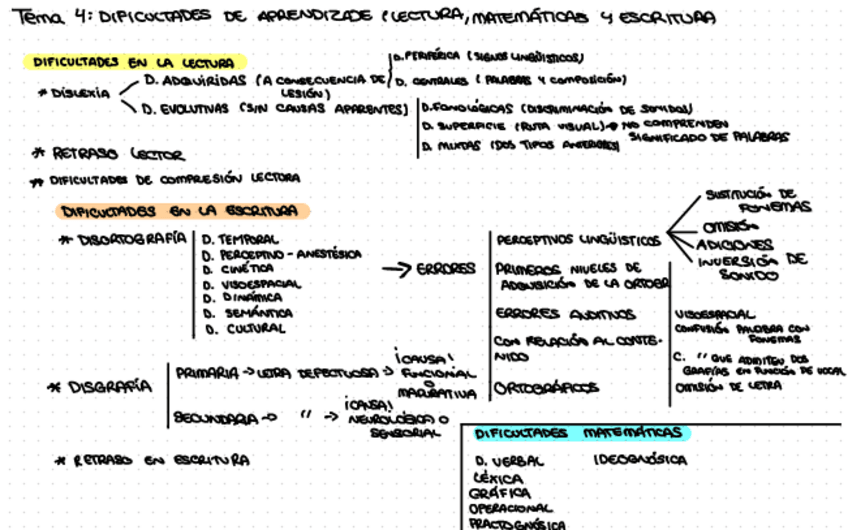 Tema 4: DIFICULTADES DE APRENDIZAJE (LECTURA, MATEMÁTICAS Y ESCRITURA
DIFICULTADES EN LA LECTURA
* DISLEXIA
D. ADQUIRIDAS (A CONSECUENCIA DE LESIÓN)
D. PERIFÉRICA (SIGNOS LINGÜISTICOS)
D. CENTRALES (PALABRAS Y COMPOSICIÓN)
D. EVOLUTIVAS (SIN CAUSAS APARENTES)
D. FONOLÓGICAS (DISCRIMINACIÓN DE SONIDOS)
D. SUPERFICIE (RUTA VISUAL) → NO COMPRENDEN SIGNIFICADO DE PALABRAS
D. MIXTAS (DOS TIPOS ANTERIORES)
* RETRASO LECTOR
* DIFICULTADES DE COMPRESIÓN LECTORA
DIFICULTADES EN LA ESCRITURA
* DISORTOGRAFÍA
D. TEMPORAL
D. PERCEPTIVO - ANESTÉSICA
D. CINÉTICA
D. VISOESPACIAL
D. DINÁMICA
D. SEMÁNTICA
D. CULTURAL
→ ERRORES
PERCEPTIVOS LINGÜISTICOS
SUSTITUCIÓN DE FONEMAS
OMISIÓN
ADICIONES
INVERSIÓN DE SONIDO
PRIMEROS NIVELES DE
ADQUISICIÓN DE LA ORTOGR
ERRORES AUDITIVOS
CON RELACIÓN AL CONTE-
NIDO
ORTOGRÁFICOS
VISOESPACIAL
CONFUSIÓN PALABRA CON
FONEMAS
C. " QUE ADMITEN DOS
GRAFÍAS EN FUNCIÓN DE VOCAL
OMISIÓN DE LETRA
* DISGRAFÍA
PRIMARIA → LETRA DEFECTUOSA → ¡CAUSA! FUNCIONAL O MADURATIVA
SECUNDARIA → " → ¡CAUSA! NEUROLÓGICA O SENSORIAL
* RETRASO EN ESCRITURA
DIFICULTADES MATEMÁTICAS
D. VERBAL IDEOGNÓSICA
LÉXICA
GRÁFICA
OPERACIONAL
PRACTOGNÓSICA